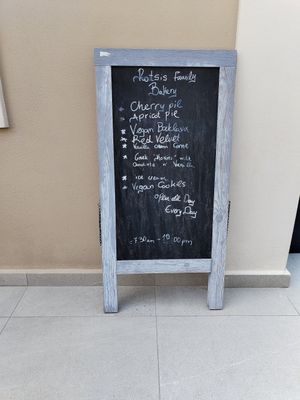 Rotsis Family
Bakery
Cherry pie
Apricot Pie
Vegan Baklava
Red Velvet
Vanilla cream Cornet
Greek "Flosines" with
chocolate or Vanilla
ice cream
Vegan Cookies
Open all Day
Every Day
7:30 am - 10:00 pm